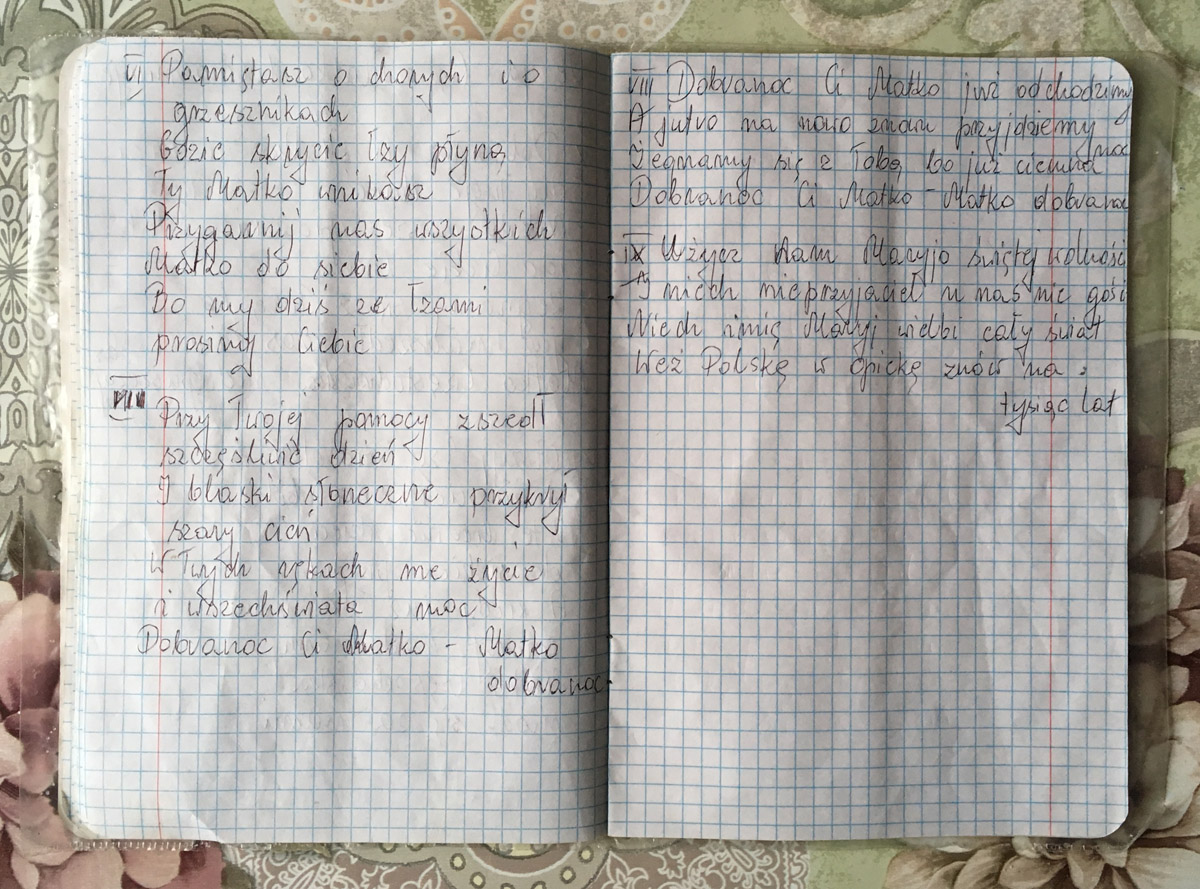 VI Pamiętasz o chorych i o
grzesznikach
Gdzie skrycie łzy płyną
Ty Matko unikasz
Przygarnij nas wszystkich
Matko do siebie
Bo my dziś ze łzami
prosimy Ciebie
VII Przy Twojej pomocy zszedł
szczęśliwie dzień
I blaski słoneczne przykrył
szary cień
W Twych rękach me życie
i wszechświata moc
Dobranoc Ci Matko - Matko
dobranoc
VIII Dobranoc Ci Matko już odchodzimy
A jutro na nowo znów przyjdziemy
Żegnamy się z Tobą bo już ciemna noc
Dobranoc Ci Matko - Matko dobranoc
IX Użycz Nam Maryjo świętej wolności
I niech nieprzyjaciel u nas nie gości
Niech imię Maryj wielbi cały świat
Weź Polskę w opiekę znów na
tysiąc lat